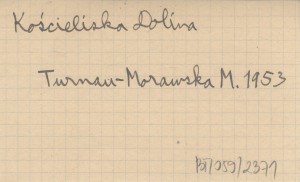 Kościeliska Dolina
Turnau-Morawska M. 1953
BI/059/2371